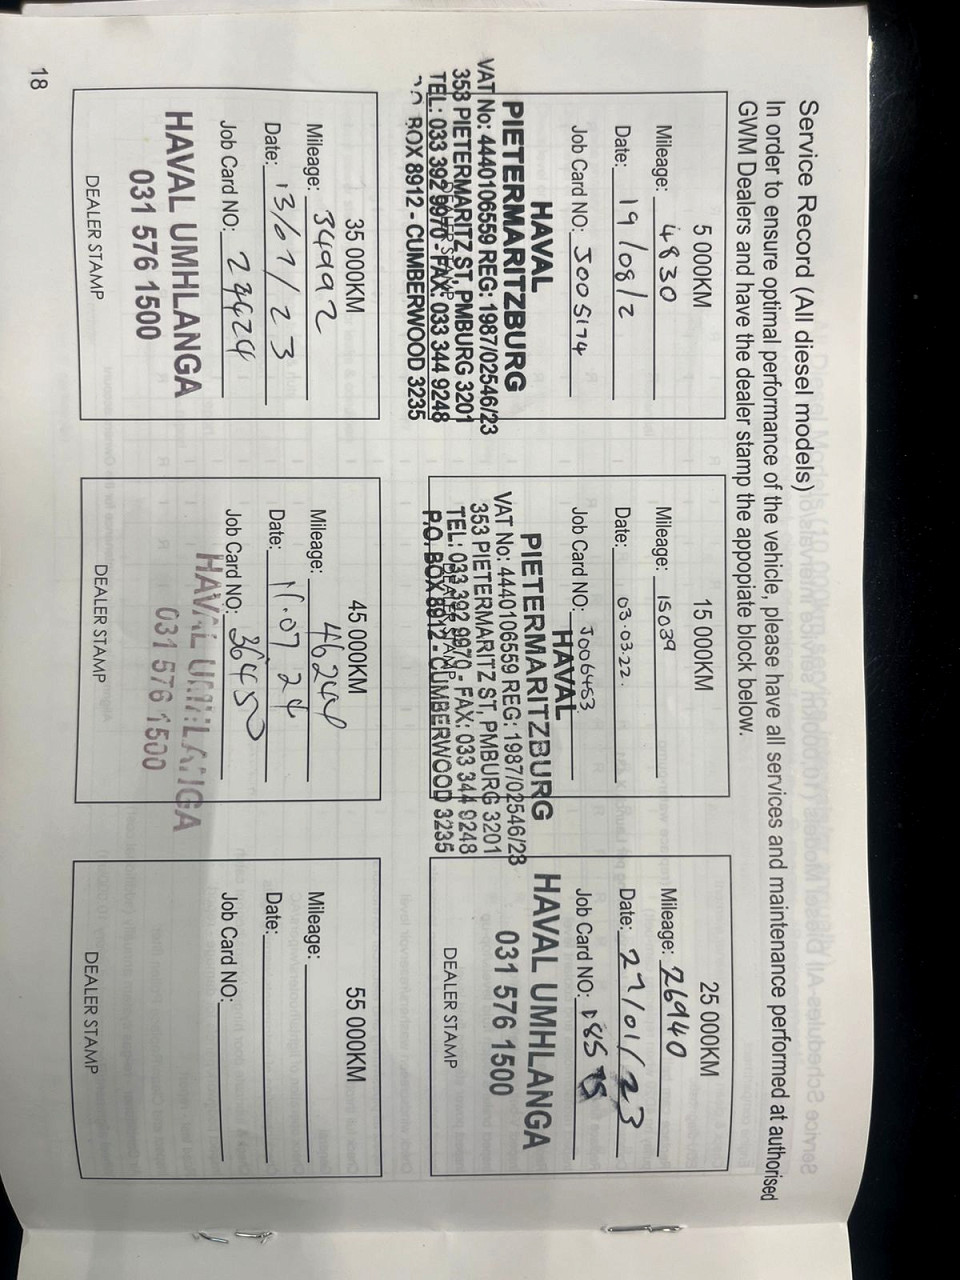 Service Record (All diesel models)
In order to ensure optimal performance of the vehicle, please have all services and maintenance performed at authorised
GWM Dealers and have the dealer stamp the appopiate block below.
5 000KM
Mileage: 4830
Date: 19/08/2
Job Card NO: J005174
HAVAL
PIETERMARITZBURG
VAT No: 4440106559 REG: 1987/02546/23
353 PIETERMARITZ ST, PMBURG 3201
DEALER STAMP
TEL: 033 392 9970 - FAX: 033 344 9248
BOX 8912 - CUMBERWOOD 3235
15 000KM
Mileage: 15039
Date: 03.03.22.
Job Card NO: J006453
HAVAL
PIETERMARITZBURG
VAT No: 4440106559 REG: 1987/02546/23
353 PIETERMARITZ ST, PMBURG 3201
TEL: 033 392 9970 - FAX: 033 344 9248
DEALER STAMP
P.O. BOX 8912 - CUMBERWOOD 3235
25 000KM
Mileage: 26940
Date: 27/01/23
Job Card NO:
HAVAL UMHLANGA
031 576 1500
DEALER STAMP
35 000KM
Mileage: 34992
Date: 13/07/23
Job Card NO:
HAVAL UMHLANGA
031 576 1500
DEALER STAMP
45 000KM
Mileage:
Date: 11.07 24
Job Card NO: 36450
HAVAL UMHLANGA
031 576 1500
DEALER STAMP
55 000KM
Mileage:
Date:
Job Card NO:
DEALER STAMP
18